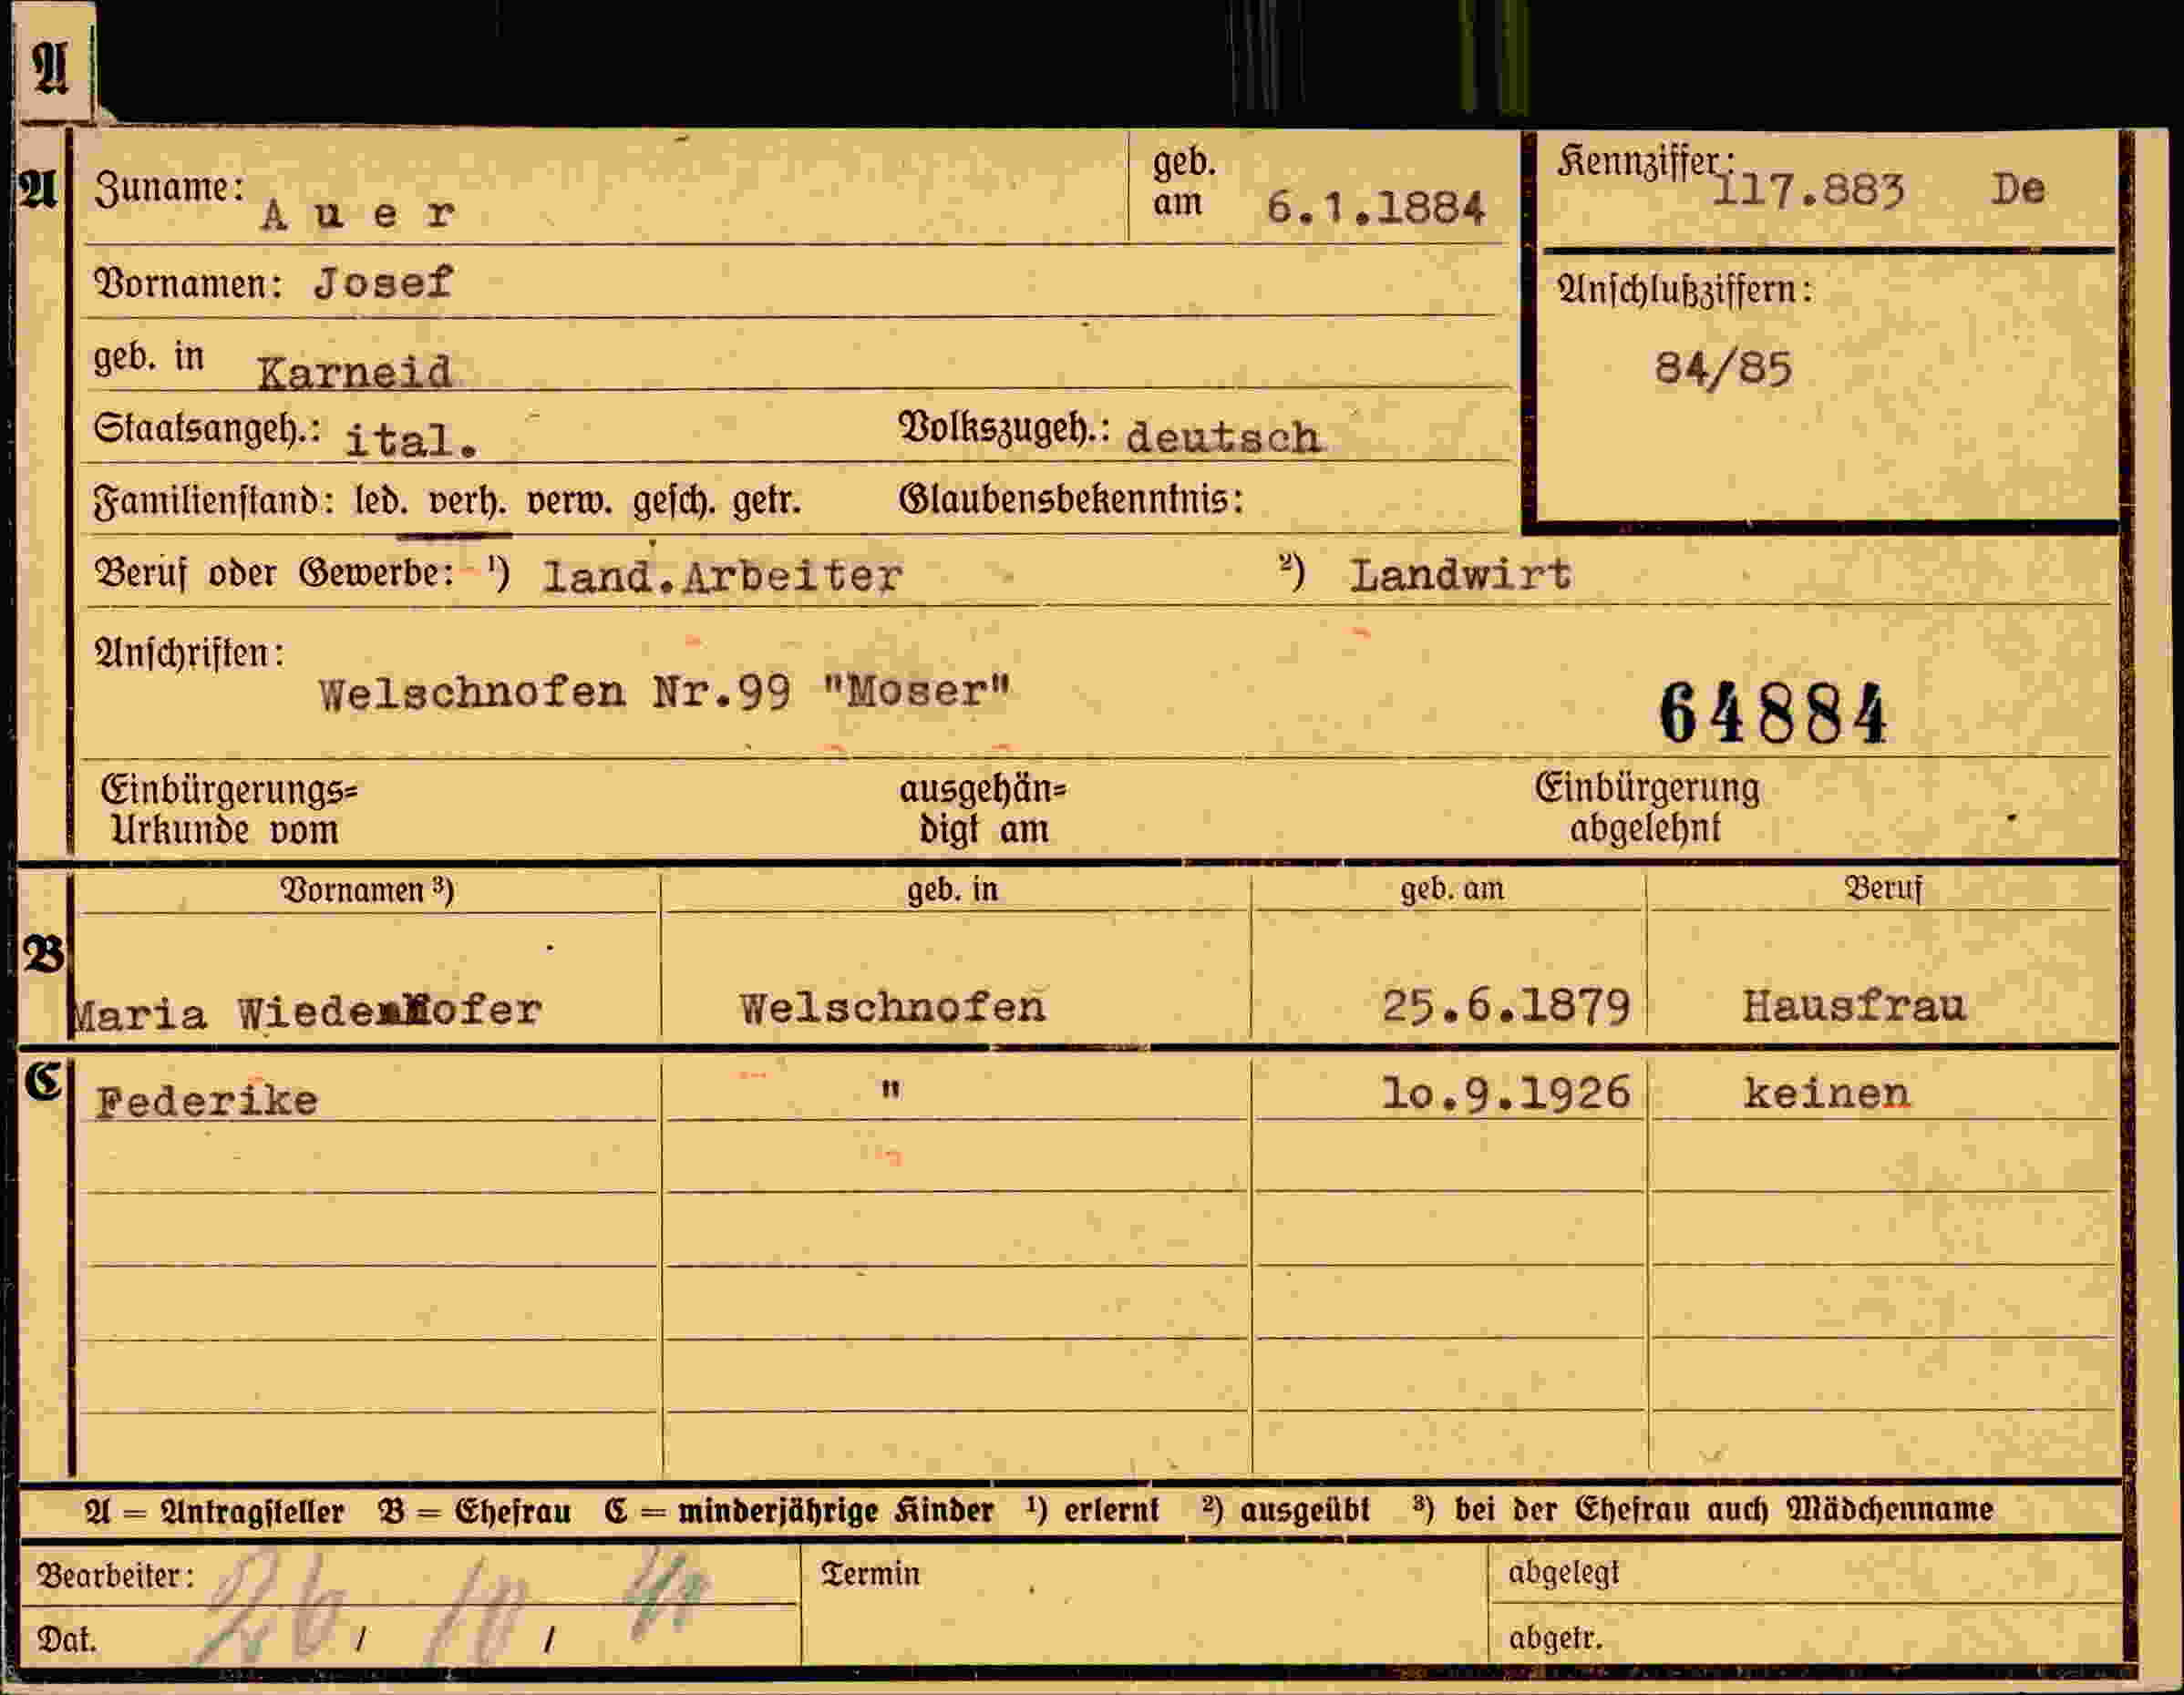 A
A Zuname: A u e r geb. am 6.1.1884 Kennziffer: 117.883 De
Vornamen: Josef
Anschlußziffern:
geb. in Karneid 84/85
Staatsangeh.: ital. Volkszugeh.: deutsch
Familienstand: led. verh. verw. gesch. getr. Glaubensbekenntnis:
Beruf oder Gewerbe: ¹) land.Arbeiter ²) Landwirt
Anschriften:
Welschnofen Nr.99 "Moser" 64884
Einbürgerungs= ausgehän= Einbürgerung
Urkunde vom digt am abgelehnt
Vornamen ³) geb. in geb. am Beruf
B
Maria Wiedenhofer Welschnofen 25.6.1879 Hausfrau
C Federike " 10.9.1926 keinen
A = Antragsteller B = Ehefrau C = minderjährige Kinder ¹) erlernt ²) ausgeübt ³) bei der Ehefrau auch Mädchenname
Bearbeiter: Termin abgelegt
Dat. 26 / 10 / abgetr.